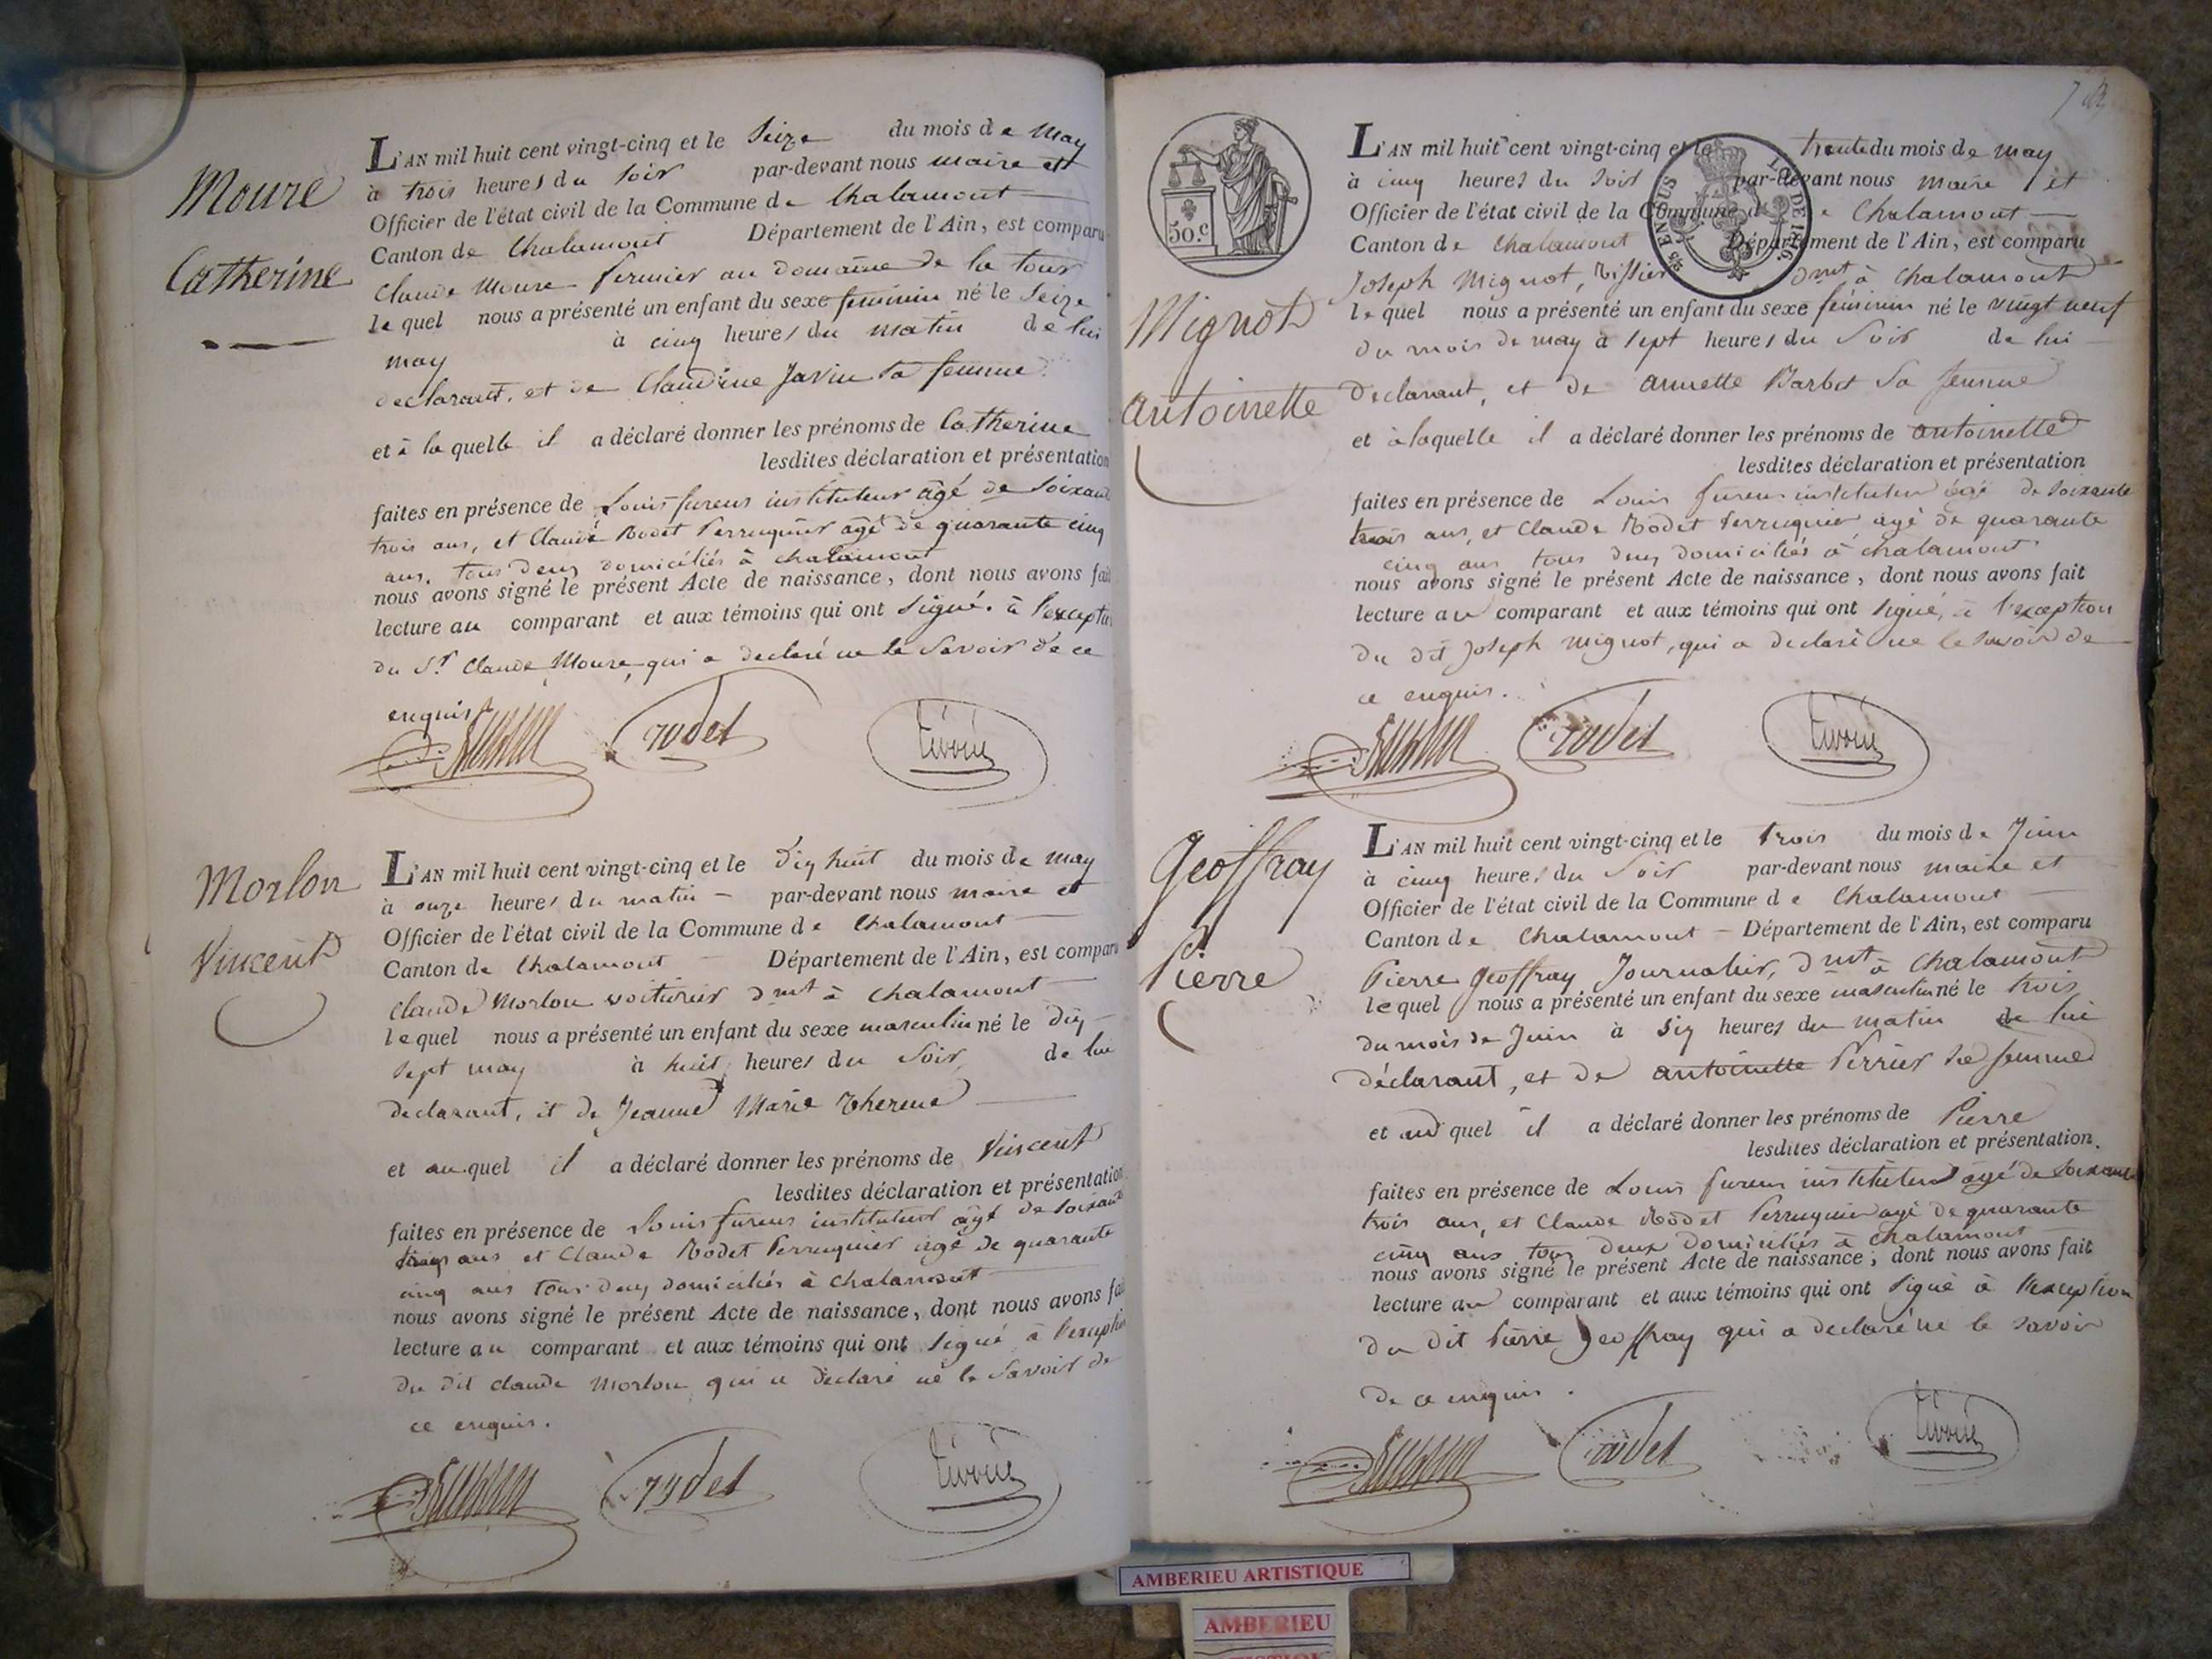 Moure
Catherine
L'AN mil huit cent vingt-cinq et le Seize du mois de May
à trois heures du soir par-devant nous maire et
Officier de l'état civil de la Commune de Chalamont
Canton de Chalamont Département de l'Ain, est comparu
Claude Moure fermier au domaine de la tour
lequel nous a présenté un enfant du sexe feminin né le Seize
may à cinq heures du matin de lui
declarant, et de Claudine Javin sa femme
et à la quelle il a déclaré donner les prénoms de Catherine
lesdites déclaration et présentation
faites en présence de Louis fureur instituteur âgé de soixante
trois ans, et Claude Rodet Perruquier âgé de quarante cinq
ans, tous deux domiciliés à chalamont
nous avons signé le présent Acte de naissance, dont nous avons fait
lecture au comparant et aux témoins qui ont signé. à l'exception
du Sr. Claude Moure, qui a declaré ne le Savoir de ce
enquis
rodet
Morlon
Vincent
L'AN mil huit cent vingt-cinq et le dix huit du mois de may
à onze heures du matin par-devant nous maire et
Officier de l'état civil de la Commune de Chalamont
Canton de Chalamont Département de l'Ain, est comparu
Claude Morlon voiturier dmt à Chalamont
lequel nous a présenté un enfant du sexe masculin né le dix
sept may à huit heures du Soir, de lui
declarant, et de Jeanne Marie
et auquel il a déclaré donner les prénoms de Vincent
lesdites déclaration et présentation
faites en présence de Louis fureur instituteur âgé de soixante
ans et Claude Rodet Perruquier agé de quarante
cinq ans tous deux domiciliés à Chalamont
nous avons signé le présent Acte de naissance, dont nous avons fait
lecture au comparant et aux témoins qui ont signé à l'exception
du dit claude Morlon qui a declaré ne le Savoir de
ce enquis.
rodet
50.c
EN SUS
DE 1816
Mignot
antoinette
L'AN mil huit cent vingt-cinq et le trente du mois de may
à cinq heures du soir par-devant nous maire et
Officier de l'état civil de la Commune de Chalamont
Canton de Chalamont Département de l'Ain, est comparu
Joseph Mignot, tissier dmt à Chalamont
lequel nous a présenté un enfant du sexe feminin né le vingt neuf
du mois de may à sept heures du Soir de lui
declarant, et de annette Barbet sa femme
et à laquelle il a déclaré donner les prénoms de antoinette
lesdites déclaration et présentation
faites en présence de Louis fureur instituteur âgé de soixante
trois ans, et Claude Rodet Perruquier agé de quarante
cinq ans tous deux domiciliés à chalamont
nous avons signé le présent Acte de naissance, dont nous avons fait
lecture au comparant et aux témoins qui ont signé, à l'exception
du dit Joseph Mignot, qui a declaré ne le savoir de
ce enquis.
rodet
Geoffray
Pierre
L'AN mil huit cent vingt-cinq et le trois du mois de Juin
à cinq heures du Soir par-devant nous maire et
Officier de l'état civil de la Commune de Chalamont
Canton de Chalamont Département de l'Ain, est comparu
Pierre Geoffray Journalier, dmt à Chalamont
lequel nous a présenté un enfant du sexe masculin né le trois
du mois de Juin à six heures du matin de lui
déclarant, et de antoinette Perrier sa femme
et au quel il a déclaré donner les prénoms de Pierre
lesdites déclaration et présentation.
faites en présence de Louis fureur instituteur agé de soixante
trois ans, et Claude Rodet Perruquier agé de quarante
cinq ans tous deux domiciliés à chalamont
nous avons signé le présent Acte de naissance, dont nous avons fait
lecture au comparant et aux témoins qui ont signé à l'exception
du dit Pierre Geoffray qui a declaré ne le savoir
de ce enquis.
rodet
AMBERIEU ARTISTIQUE
AMBERIEU